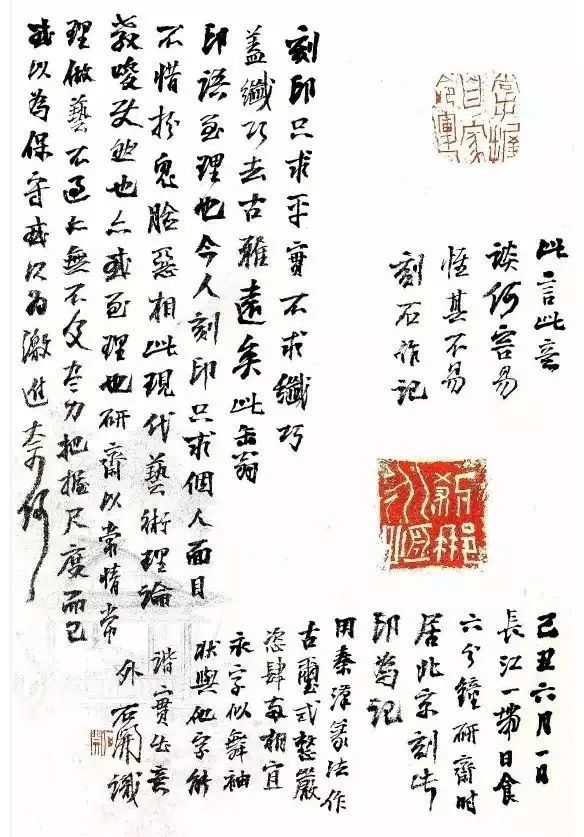 掌握
自家
命運
此言此意
談何容易
惟其不易
刻石作記
刹那
永恒
刻印只求平實不求纖巧
蓋纖巧去古雅遠矣此缶翁
印語至理也今人刻印只求個人面目
不惜扮鬼臉惡相此現代藝術理論
教唆使然也亦或至理也研齋以常情常
理做藝不過亦無不及盡力把握尺度而已
或以為保守或以為激進奈何
己丑六月一日
長江一帶日食
六分鐘研齋時
居北京刻此
印為記
用秦漢篆法作
古璽式整嚴
恣肆兩相宜
永字似舞袖
狀與他字能
諧實出意
外 石開識